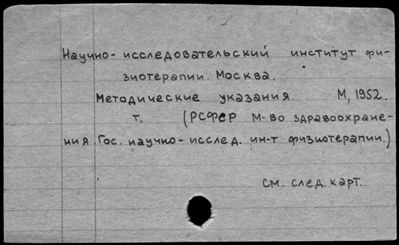 Научно-исследовательский институт фи-
зиотерапии. Москва.
Методические указания. М, 1952.
т. (РСФСР М-во здравоохране-
ния. Гос. научно-исслед. ин-т физиотерапии.)
см. след. карт.